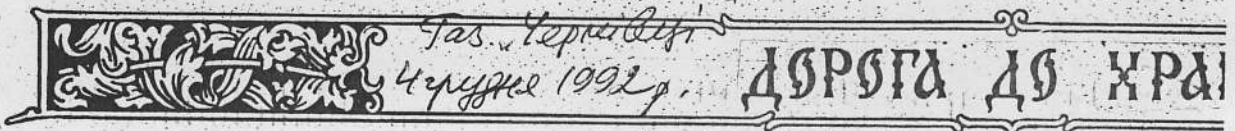 Газ. „Чернівці
4 грудня 1992 р.
ДОРОГА ДО ХРА